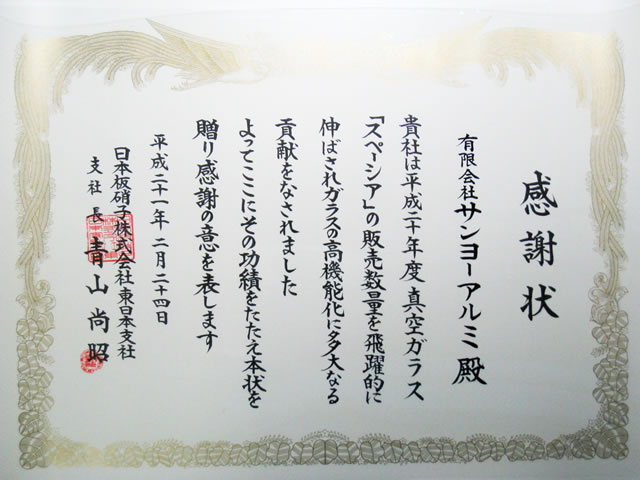 感謝状
有限会社サンヨーアルミ殿
貴社は平成二十年度真空ガラス
「スペーシア」の販売数量を飛躍的に
伸ばされガラスの高機能化に多大なる
貢献をなされました
よってここにその功績をたたえ本状を
贈り感謝の意を表します
平成二十一年二月二十四日
日本板硝子株式会社東日本支社
支社長青山尚昭